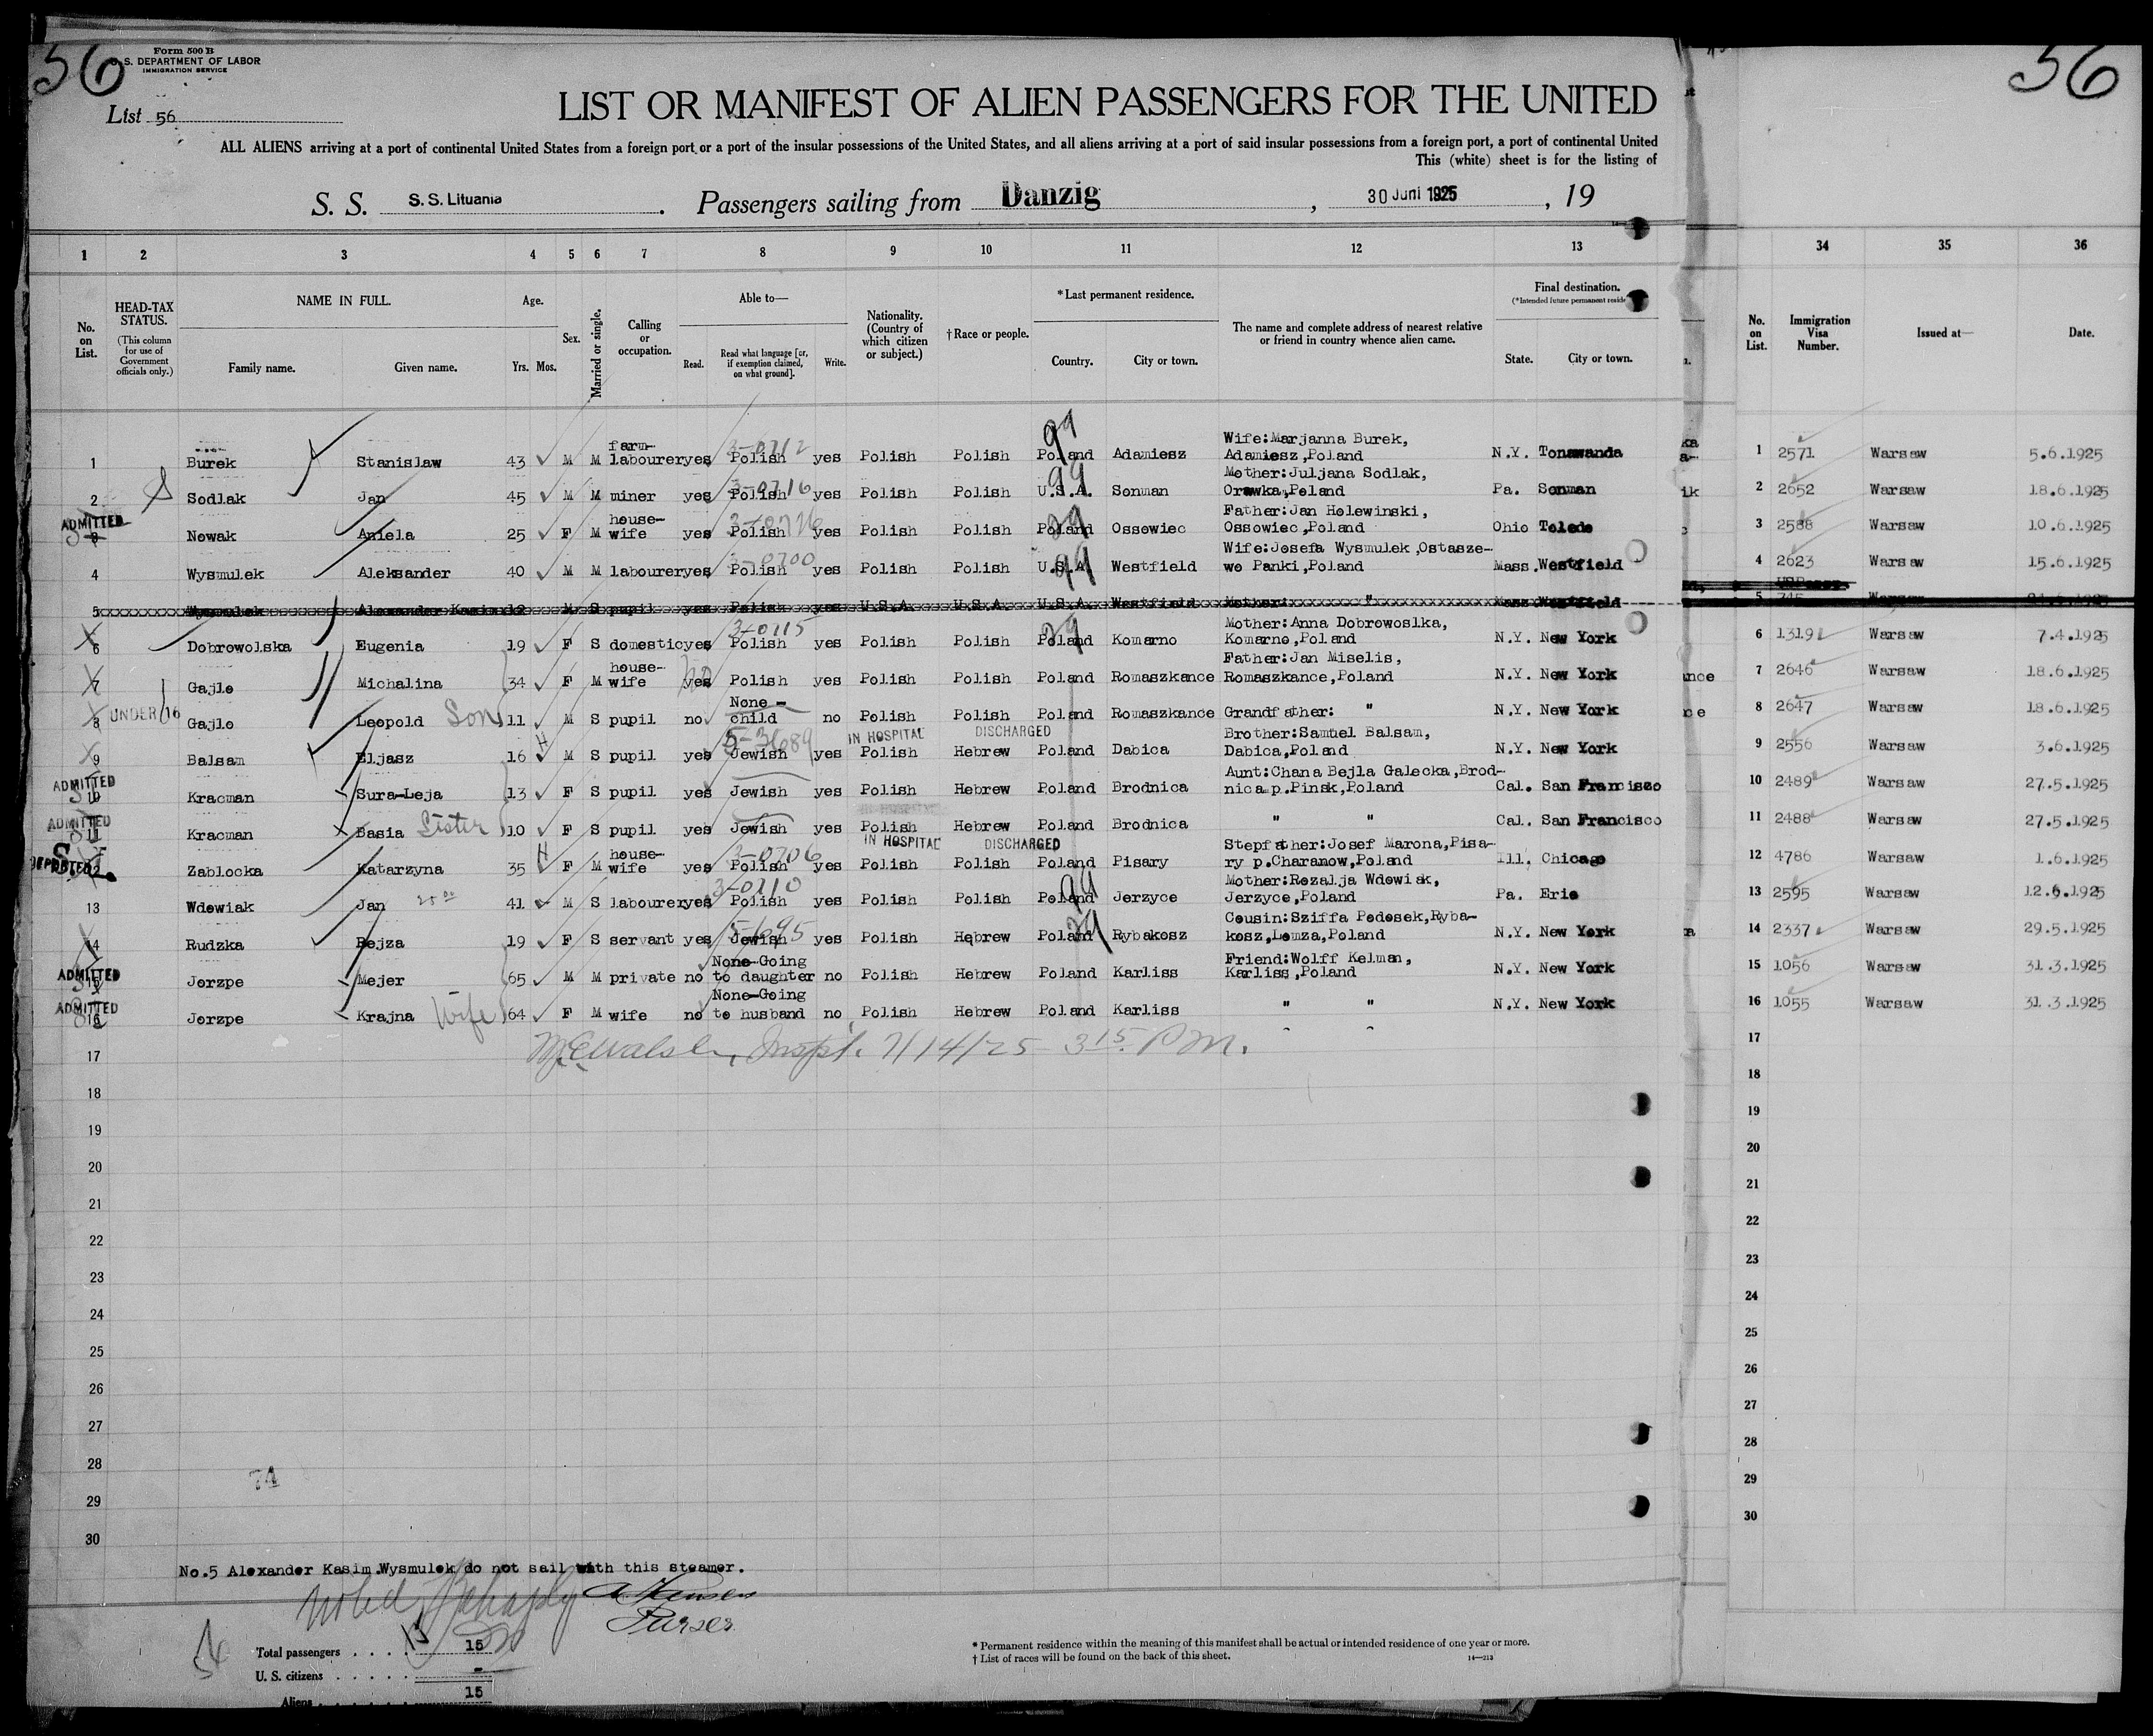 56
Form 500 B
U. S. DEPARTMENT OF LABOR
IMMIGRATION SERVICE
List 56
56
LIST OR MANIFEST OF ALIEN PASSENGERS FOR THE UNITED
ALL ALIENS arriving at a port of continental United States from a foreign port or a port of the insular possessions of the United States, and all aliens arriving at a port of said insular possessions from a foreign port, a port of continental United
This (white) sheet is for the listing of
S. S. S. S. Lituania . Passengers sailing from Danzig , 30 Juni 1925 , 19
1 2 3 4 5 6 7 8 9 10 11 12 13 34 35 36
No. on List. HEAD-TAX STATUS. (This column for use of Government officials only.) NAME IN FULL. Family name. Given name. Age. Yrs. Mos. Sex. Married or single. Calling or occupation. Able to— Read. Read what language [or, if exemption claimed, on what ground]. Write. Nationality. (Country of which citizen or subject.) † Race or people. * Last permanent residence. Country. City or town. The name and complete address of nearest relative or friend in country whence alien came. Final destination. (*Intended future permanent reside State. City or town. No. on List. Immigration Visa Number. Issued at— Date.
1 Burek Stanislaw 43 M M farm-labourer yes Polish 3-0712 yes Polish Polish Poland 99 Adamiesz Wife:Marjanna Burek, Adamiesz,Poland N.Y. Tonawanda 1 2571 Warsaw 5.6.1925
2 Sodlak Jan 45 M M miner yes Polish 3-0716 yes Polish Polish U.S.A. 99 Sonman Mother:Juljana Sodlak, Orawka,Poland Pa. Sonman 2 2652 Warsaw 18.6.1925
ADMITTED 3 Nowak Aniela 25 F M house-wife yes Polish yes Polish Polish Poland Ossowiec Father:Jan Holewinski, Ossowiec,Poland Ohio Toledo 3 2588 Warsaw 10.6.1925
4 Wysmulek Aleksander 40 M M labourer yes Polish 3-0700 yes Polish Polish U.S.A. 99 Westfield Wife:Josefa Wysmulek,Ostasze-wo Panki,Poland Mass. Westfield 4 2623 Warsaw 15.6.1925
5 Wysmulek Alexander Kasim 12 M S pupil yes Polish yes U.S.A. U.S.A. U.S.A. Westfield Mother: " Mass. Westfield 5 745 Warsaw
6 Dobrowolska Eugenia 19 F S domestic yes Polish 3-0715 yes Polish Polish Poland Komarno Mother:Anna Dobrowoslka, Komarno,Poland N.Y. New York 6 1319 Warsaw 7.4.1925
7 Gajlo Michalina 34 F M house-wife yes Polish yes Polish Polish Poland Romaszkance Father:Jan Miselis, Romaszkance,Poland N.Y. New York 7 2646 Warsaw 18.6.1925
8 UNDER 16 Gajlo Leopold Son 11 M S pupil no None - child no Polish Polish Poland Romaszkance Grandfather: " N.Y. New York 8 2647 Warsaw 18.6.1925
9 Balsam Eljasz 16 M S pupil yes Jewish yes IN HOSPITAL Polish DISCHARGED Hebrew Poland Dabica Brother:Samuel Balsam, Dabica,Poland N.Y. New York 9 2556 Warsaw 3.6.1925
ADMITTED 10 Kracman Sura-Leja 13 F S pupil yes Jewish yes Polish Hebrew Poland Brodnica Aunt:Chana Bejla Galecka,Brod-nica p.Pinsk,Poland Cal. San Francisco 10 2489 Warsaw 27.5.1925
ADMITTED 11 Kracman Basia Sister 10 F S pupil yes Jewish yes Polish Hebrew Poland Brodnica " " Cal. San Francisco 11 2488 Warsaw 27.5.1925
DEPORTED 12 Zablocka Katarzyna 35 F M house-wife yes Polish 3-0706 yes IN HOSPITAL Polish DISCHARGED Polish Poland Pisary Stepfather:Josef Marona,Pisa-ry p.Charanow,Poland Ill. Chicago 12 4786 Warsaw 1.6.1925
13 Wdowiak Jan 41 M S labourer yes Polish 3-0710 yes Polish Polish Poland 99 Jerzyce Mother:Rozalja Wdowiak, Jerzyce,Poland Pa. Erie 13 2595 Warsaw 12.6.1925
14 Rudzka Rejza 19 F S servant yes Jewish 5-695 yes Polish Hebrew Poland Rybakosz Cousin:Sziffa Pedosek,Ryba-kosz,Lomza,Poland N.Y. New York 14 2337 Warsaw 29.5.1925
ADMITTED 15 Jorzpe Mejer 65 M M private no None-Going to daughter no Polish Hebrew Poland Karliss Friend:Wolff Kelman, Karliss,Poland N.Y. New York 15 1056 Warsaw 31.3.1925
ADMITTED 16 Jorzpe Krajna Wife 64 F M wife no None-Going to husband no Polish Hebrew Poland Karliss " " N.Y. New York 16 1055 Warsaw 31.3.1925
17 Inspt. 7/14/25 3 15 P.M. 17
18 18
19 19
20 20
21 21
22 22
23 23
24 24
25 25
26 26
27 27
28 28
29 29
30 30
74
No.5 Alexander Kasim.Wysmulek do not sail with this steamer.
Purser
Total passengers . . . . 15
U. S. citizens . . . . . -
Aliens . . . . . . 15
* Permanent residence within the meaning of this manifest shall be actual or intended residence of one year or more.
† List of races will be found on the back of this sheet. 14—213